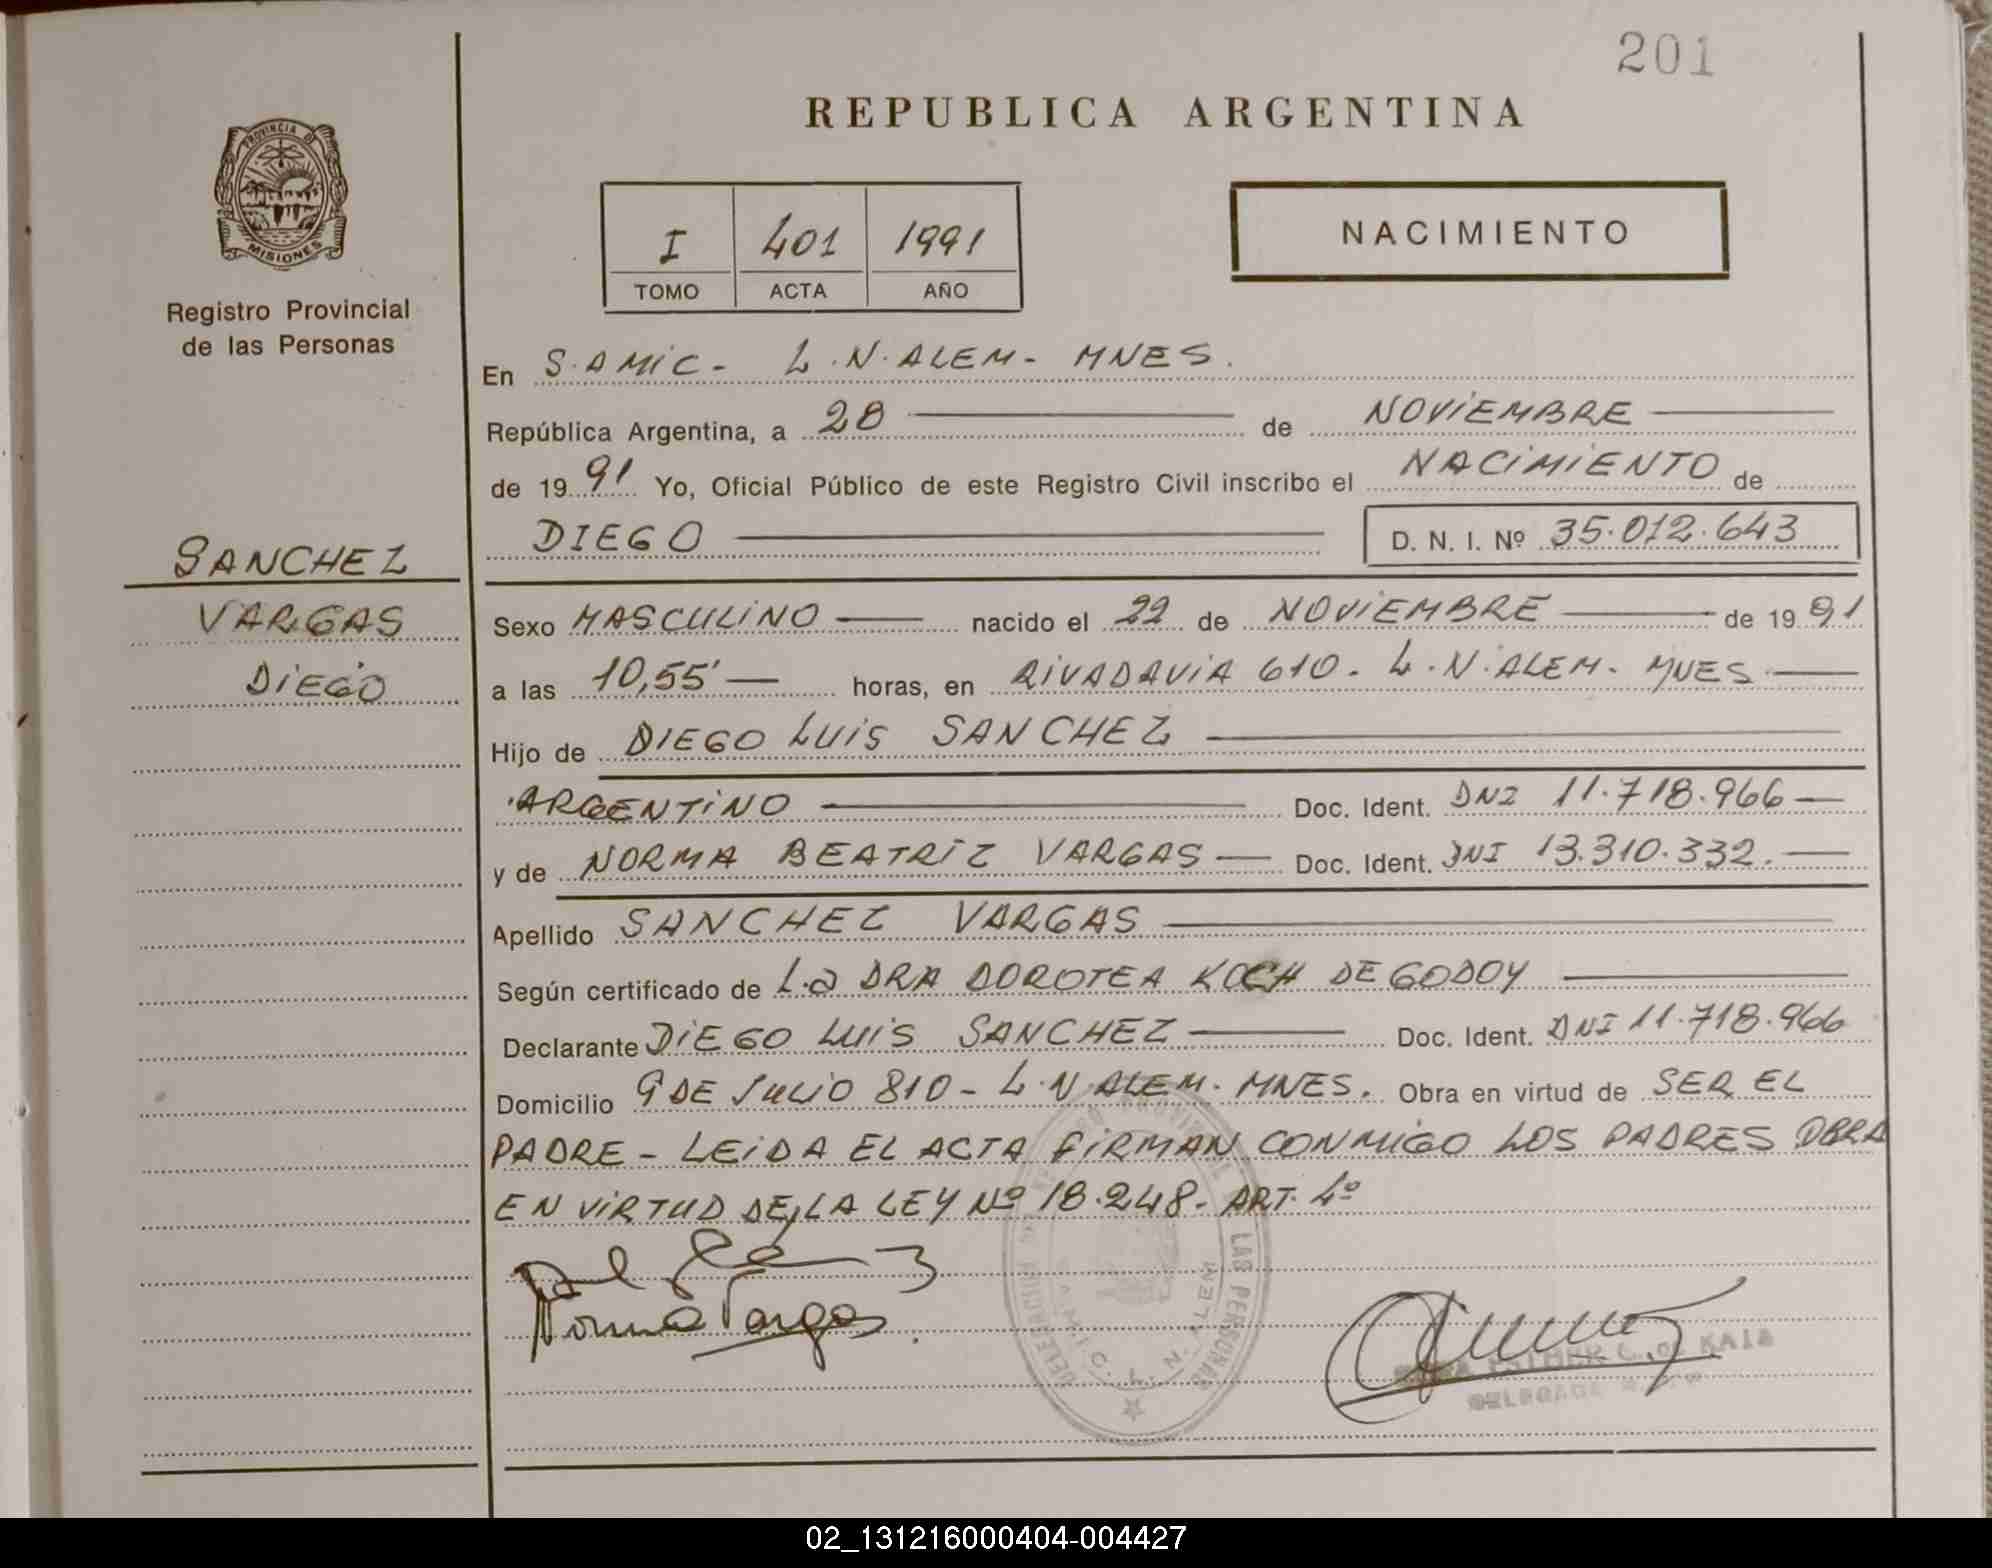 201
REPUBLICA ARGENTINA
PROVINCIA DE
MISIONES
Registro Provincial
de las Personas
I 401 1991
TOMO ACTA AÑO
NACIMIENTO
En S.AMIC- L.N.ALEM- MNES.
República Argentina, a 28 de NOVIEMBRE
de 1991 Yo, Oficial Público de este Registro Civil inscribo el NACIMIENTO de
DIEGO D. N. I. Nº 35.012.643
SANCHEZ
VARGAS
DIEGO
Sexo MASCULINO nacido el 22 de NOVIEMBRE de 1991
a las 10,55' horas, en RIVADAVIA 610- L.N.ALEM- MNES.
Hijo de DIEGO LUIS SANCHEZ
ARGENTINO Doc. Ident. DNI 11.718.966
y de NORMA BEATRIZ VARGAS Doc. Ident. DNI 13.310.332.
Apellido SANCHEZ VARGAS
Según certificado de La DRA DOROTEA KOCH DE GODOY
Declarante DIEGO LUIS SANCHEZ Doc. Ident. DNI 11.718.966
Domicilio 9 DE JULIO 810- L.N ALEM- MNES. Obra en virtud de SER EL
PADRE- LEIDA EL ACTA FIRMAN CONMIGO LOS PADRES OBRA
EN VIRTUD DE LA LEY Nº 18.248- ART. 4º
Norma Vargas
LAS PERSONAS
S.A.M.I.C. L. N. ALEM
ESTHER C. de KAIS
DELEGADA
02_131216000404-004427